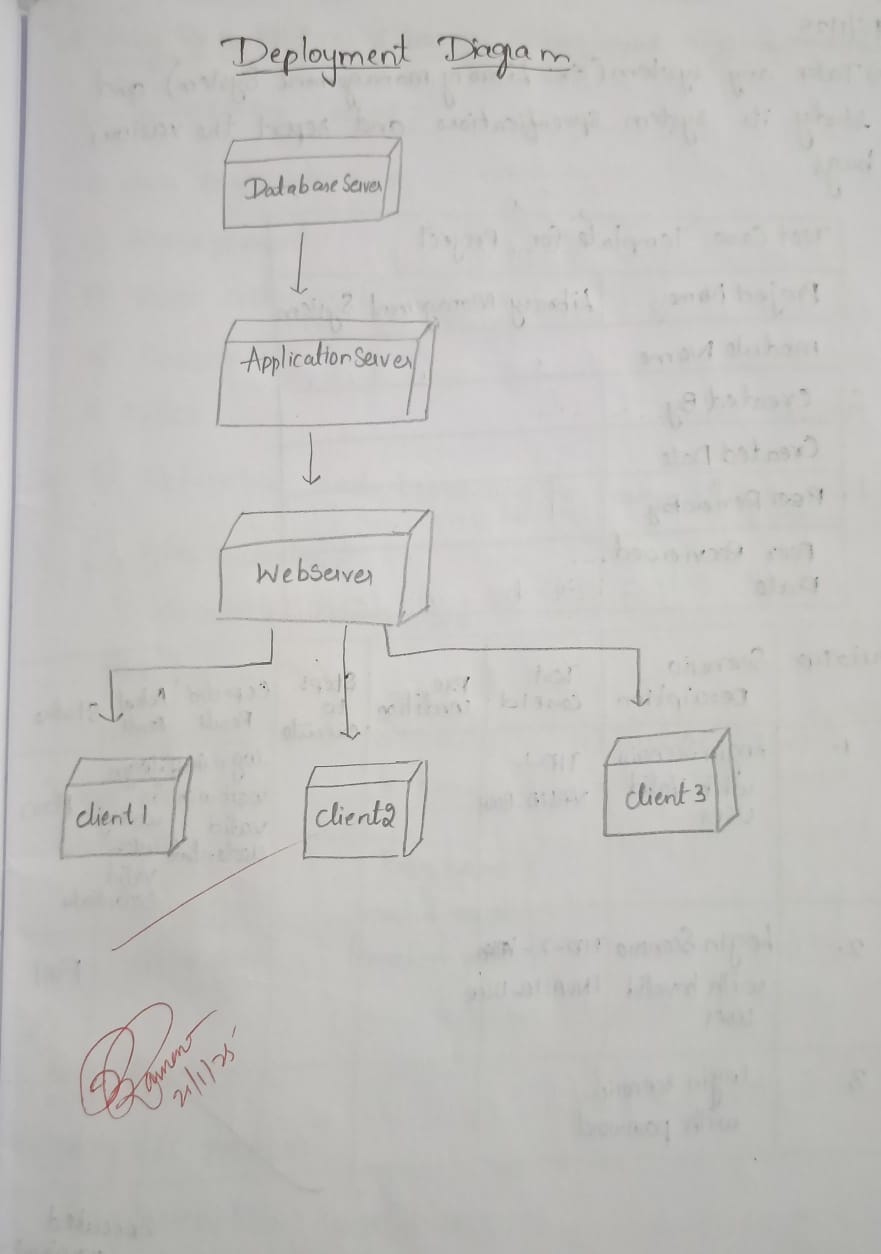 Deployment Diagram
Database Server
Application Server
Webserver
client 1
client2
client 3
21/1/25